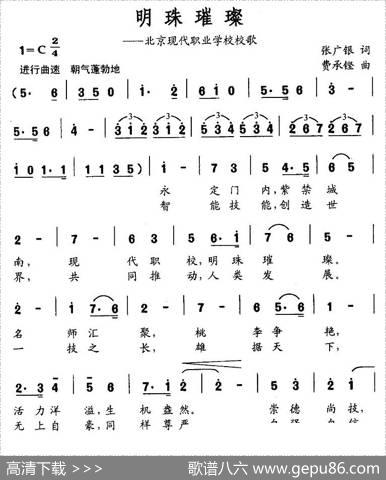 明珠璀璨
1=C 2/4
——北京现代职业学校校歌
张广银 词
进行曲速 朝气蓬勃地
费承铿 曲
(5· 6 | 3 5 | 1· 2 | 6 1 0 | 3· 2 | 1· 3 |
5· 5 6 | 4· 5 6 | 3 1 2 3 1 2 | 3 1 2 3 1 2 |
1 0 1 0 1· 1 | 1 1 3 5) | 1 - | 7 3 | 5 4· 5 | 6 5 |
永 定门 内,紫禁 城
智 能技 能,创造 世
2 - | 7 - | 6· 3 | 5 6· 1 | 7 6 | 5 - |
南, 现 代职 校,明珠 璀 璨。
界, 共 同推 动,人类 发 展。
名 师汇 聚, 桃 李争 艳,
一 技之 长, 雄 据天 下,
2· 3 4 3 | 5 6 6 | 7· 2 | 1 - | 3· 3 | 2 1 |
活力洋 溢,生 机 盎然。 崇德 尚技,
无上自 豪,同 样 尊严
高清下载 >>>
歌谱八六 www.gepu86.com